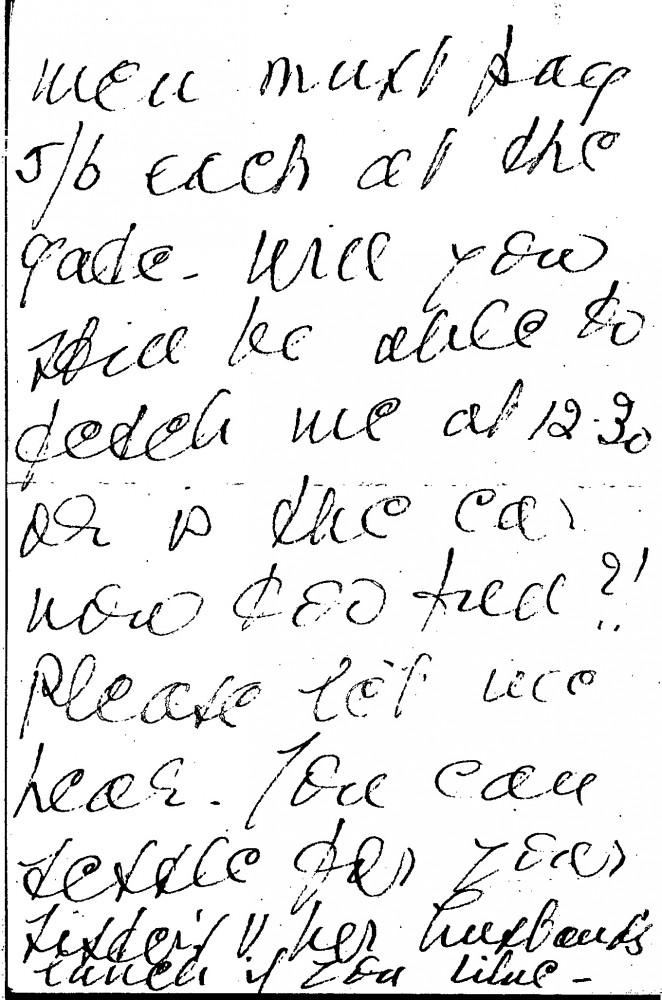 men must pay
5/6 each at the
gate. Will you
still be able to
fetch me at 12.30
or is the car
now too full ?!
Please let me
hear. You can
settle for your
sister's & her husband's
lunch if you like -